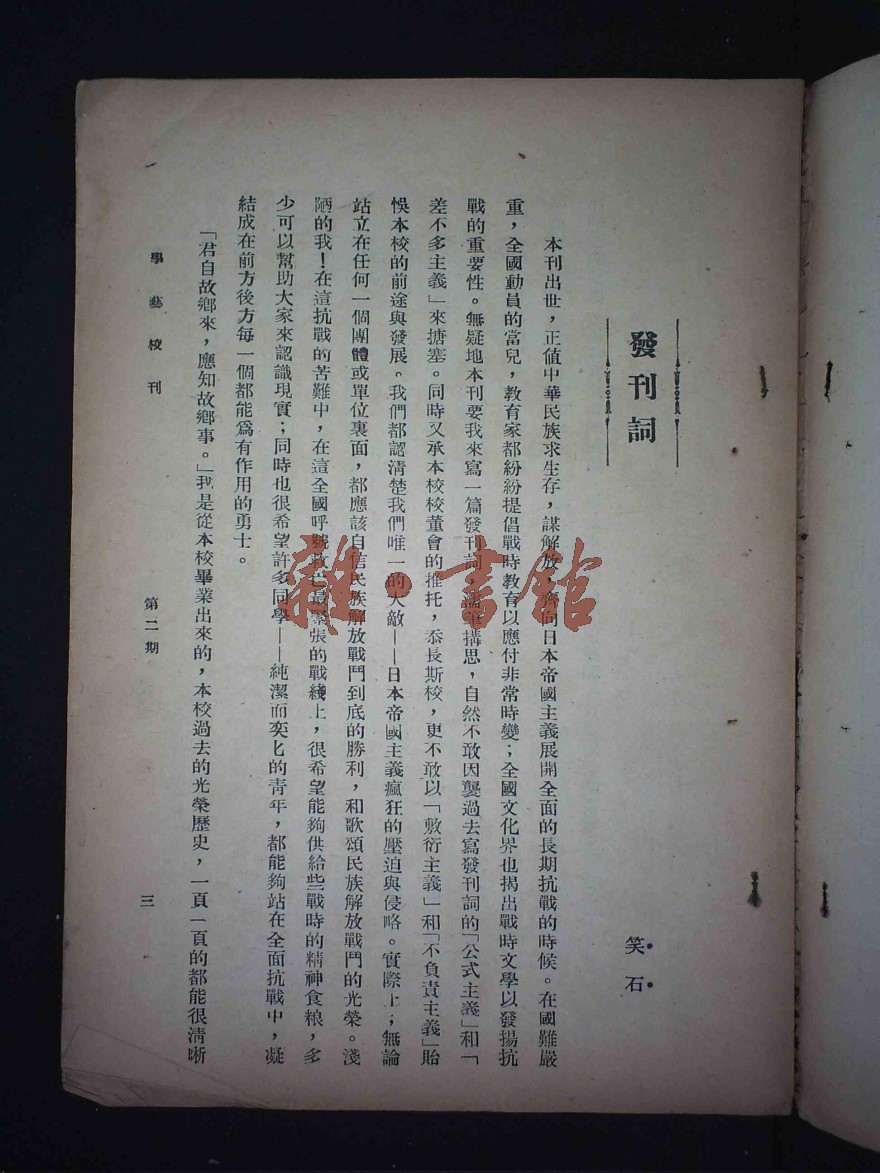 發刊詞
笑石
本刊出世，正値中華民族求生存，謀解放，齊向日本帝國主義展開全面的長期抗戰的時候。在國難嚴
重，全國動員的當兒，教育家都紛紛提倡戰時教育以應付非常時變；全國文化界也揭出戰時文學以發揚抗
戰的重要性。無疑地本刊要我來寫一篇發刊詞，筆搆思，自然不敢因襲過去寫發刊詞的「公式主義」和「
差不多主義」來搪塞。同時又承本校校董會的推托，忝長斯校，更不敢以「敷衍主義」和「不負責主義」貽
悞本校的前途與發展。我們都認清楚我們唯一的大敵——日本帝國主義瘋狂的壓迫與侵略。實際上；無論
站立在任何一個團體或單位裏面，都應該自信民族解放戰鬥到底的勝利，和歌頌民族解放戰鬥的光榮。淺
陋的我！在這抗戰的苦難中，在這全國呼號救亡最緊張的戰綫上，很希望能夠供給些戰時的精神食粮，多
少可以幫助大家來認識現實；同時也很希望許多同學——純潔而奕匕的靑年，都能夠站在全面抗戰中，凝
結成在前方後方每一個都能爲有作用的勇士。
「君自故鄉來，應知故鄉事。」我是從本校畢業出來的，本校過去的光榮歷史，一頁一頁的都能很清晰
學藝校刊
第二期
三
雜·書館